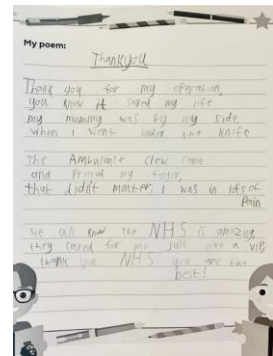 My poem:
Thankyou
Thank you for my operation,
you know it saved my life
my mummy was by my side
when I went under the knife
The Ambulance Crew came
and my
that didn't matter, I was in lots of
Pain
we all know the NHS is amazing,
they cared for me just like a VIP,
thank you NHS you are the
best!